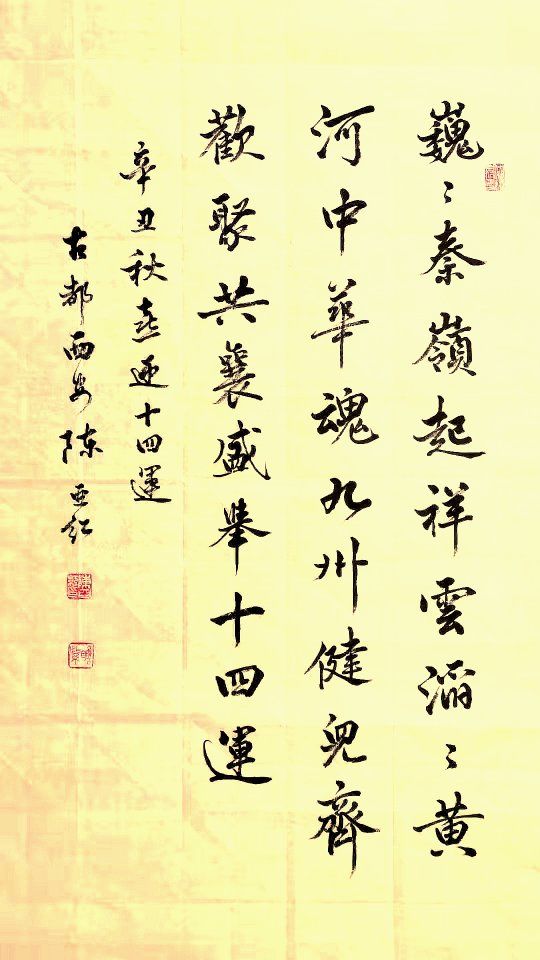 巍〻秦嶺起祥雲滔〻黄
河中華魂九州健兒齊
歡聚共襄盛舉十四運
辛丑秋喜迎十四運
古都西安陈亚红